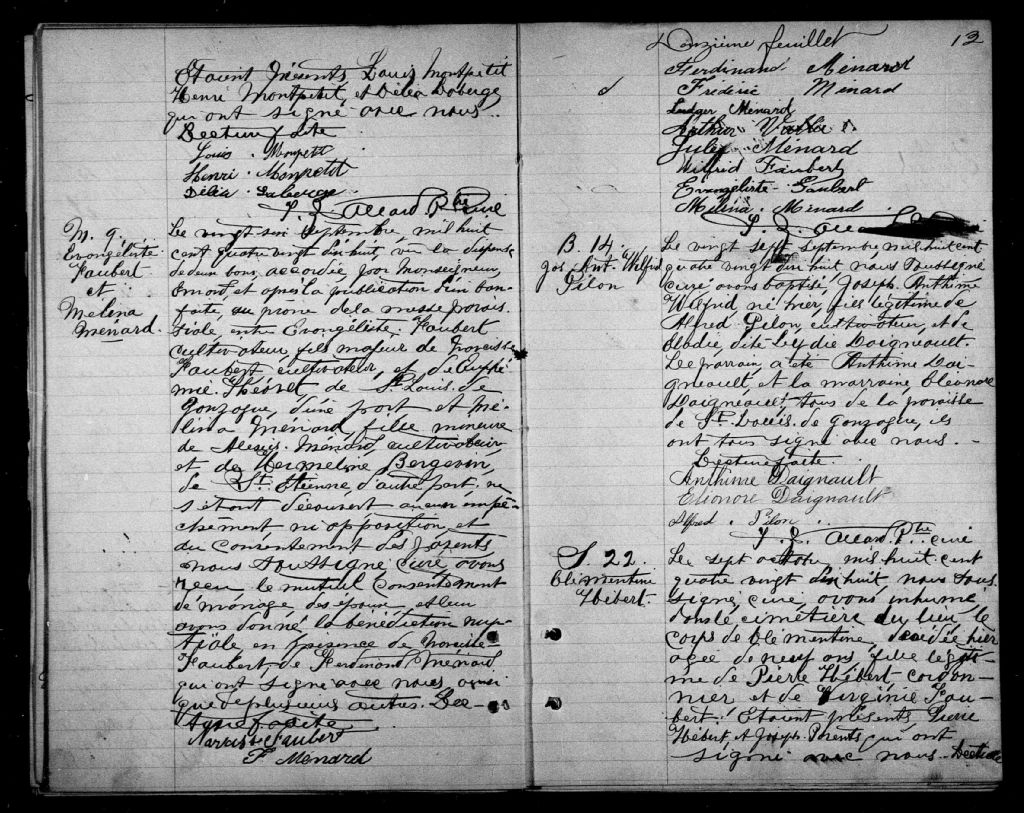 Etaient présents, Louis Montpetit
Henri Montpetit, et Délia Laberge
qui ont signé avec nous.
Lecture faite
Louis Monpetit
Henri Monpetit
Délia Laberge
Allard Ptre curé
M. 9.
Evangéliste
Faubert
et
Melena
Ménard.
Le vingt six Septembre, mil huit
cent quatre vingt dix huit, vu la dispense
de deux bans accordée par Monseigneur
Emard, et après la publication d'un ban
faite, au prone de la messe parois-
siale, entre Evangéliste Faubert
cultivateur, fils majeur de Narcisse
Faubert cultivateur, et d'Euphé-
mie Théoret, de St. Louis de
Gonzague, d'une part et Mé-
lina Ménard, fille mineure
de Alexis Ménard, cultivateur
et de Hermeline Bergevin,
de St. Etienne, d'autre part, ne
s'étant découvert aucun empê-
chement ni opposition, et
du consentement des parents
nous soussigné curé avons
reçu le mutuel consentement
de mariage des époux, et leur
avons donné la bénédiction nup-
tiale en présence de Narcisse
Faubert, de Ferdinand Ménard
qui ont signé avec nous ainsi
que de plusieurs autres. Lec-
ture faite
Narcisse Faubert
F Ménard
Donzième feuillet
12
Ferdinand Ménard
Frédéric Ménard
Ludger Ménard
Arthur
Jules Ménard
Wilfrid Faubert
Evangéliste Faubert
Melina Ménard
B. 14.
Jos. Ant. Wilfrid
Pilon
Le vingt sept septembre mil huit cent
quatre vingt dix huit nous soussigné
curé avons baptisé Joseph Anthime
Wilfrid, né hier, fils légitime de
Alfred Pilon, cultivateur, et de
Elodie dite Lydie Daigneault.
Le parrain a été Anthime Dai-
gneault, et la marraine Eléonore
Daigneault, tous de la paroisse
de St. Louis de Gonzague, ils
ont tous signé avec nous.
Lecture faite.
Anthime Daignault
Elionore Daignault
Alfred Pilon
Allard Ptre curé
S. 22.
Clémentine
Hébert.
Le sept octobre mil huit cent
quatre vingt dix huit nous sous
signé, curé, avons inhumé,
dans le cimetière du lieu, le
corps de Clémentine, décédée hier
agée de neuf ans, fille légiti-
me de Pierre Hébert cordon-
nier, et de Virginie Fau-
bert. Etaient présents, Pierre
Hébert, et Joseph Parents qui ont
signé avec nous. Lecture